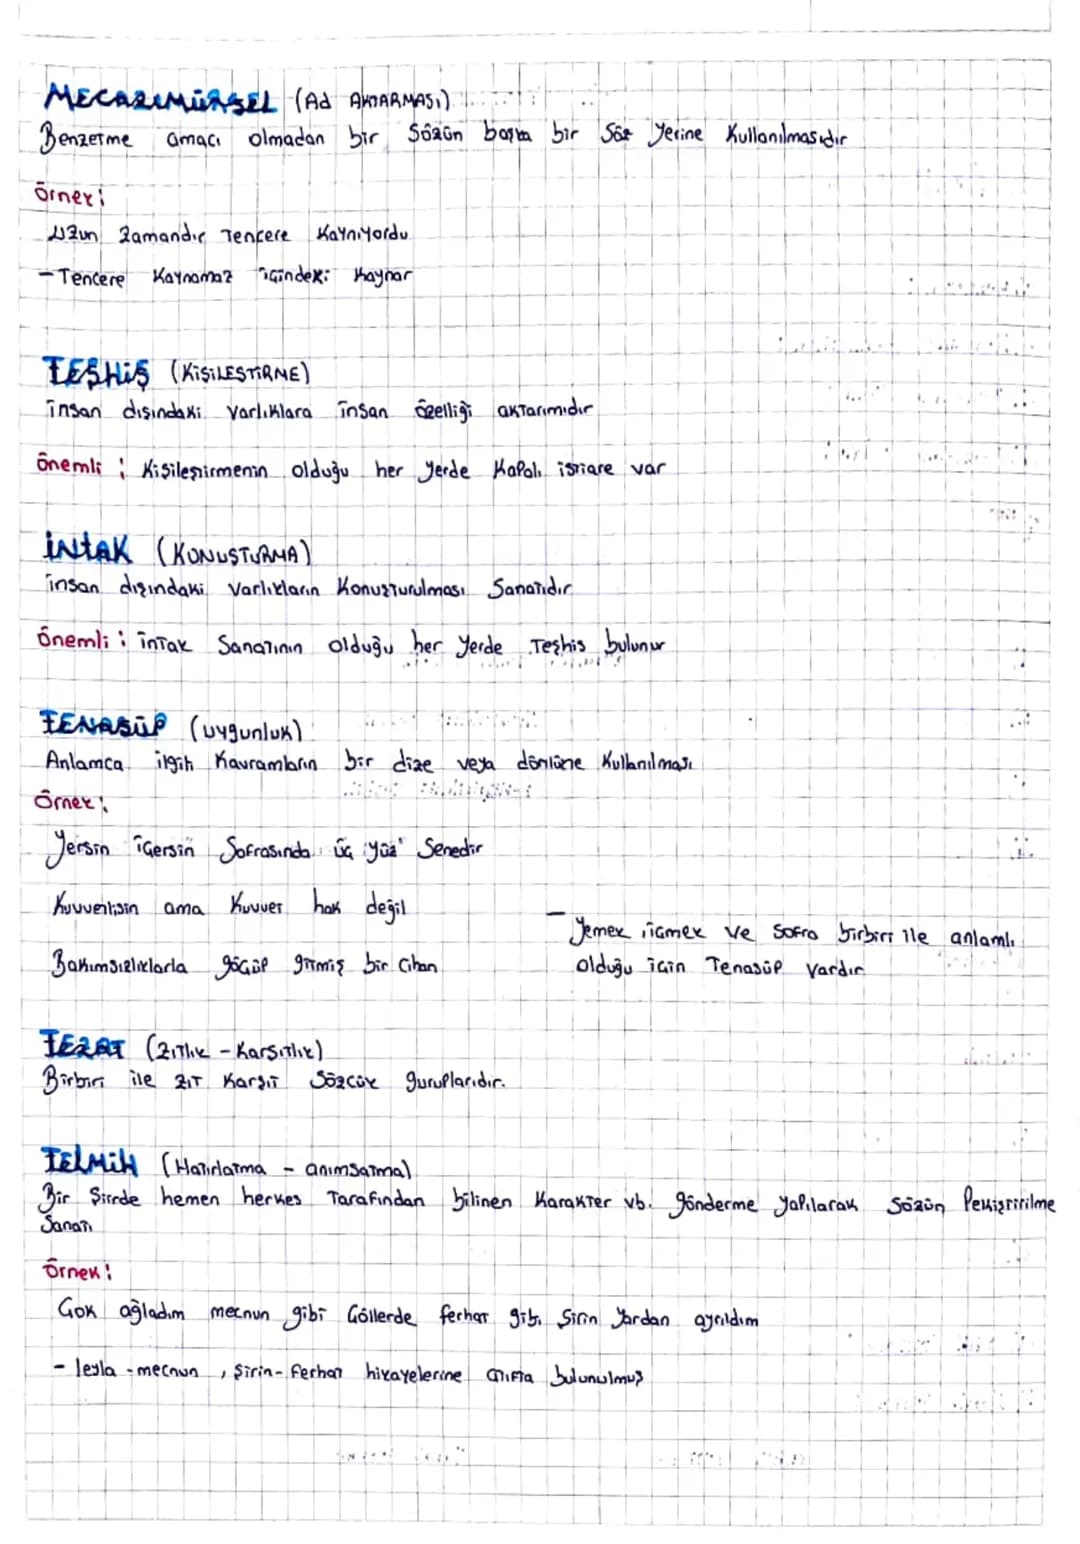 MECAZIMÜRSEL (Ad AKTARMASI)
Benzetme amacı olmadan bir Sözün başka bir Söz Yerine Kullanılmasıdır
Örnek:
Uzun Zamandır Tencere Kaynıyordu
- Tencere Kaynamaz içindeki Kaynar
TEŞHİŞ (KİŞİLEŞTİRNE)
insan dışındaki varlıklara insan özelliği aktarımıdır
Önemli : Kişileştirmenin olduğu her yerde Kapalı istiare var
İNTAK (KONUŞTURMA)
insan dışındaki varlıkların Konuşturulması Sanatıdır
Önemli : intak Sanatının olduğu her yerde Teşhis bulunur
TENASÜP (uygunluk)
Anlamca ilgili Kavramların bir dize veya dörtlükte Kullanılması
Örnek:
Yersin içersin Sofrasında üç yüz' Senedir
Kuvvetlisin ama Kuvvet hak değil
Bakımsızlıklarla göçüp gitmiş bir Cihan
- Yemek, içmek ve Sofra birbiri ile anlamlı
olduğu için Tenasüp Vardır
TEZAT (Zıtlık - Karşıtlık)
Birbiri ile zıt Karşıt Sözcük guruplarıdır.
TELMİH (Hatırlatma - anımsatma)
Bir Şiirde hemen herkes Tarafından bilinen Karakter vb. gönderme yapılarak Sözün Pekiştirilme
Sanatı
Örnek:
Çok ağladım mecnun gibi Çöllerde ferhat gibi Şirin Yardan ayrıldım
- leyla - mecnun , Şirin - Ferhat hikayelerine atıfta bulunulmuş